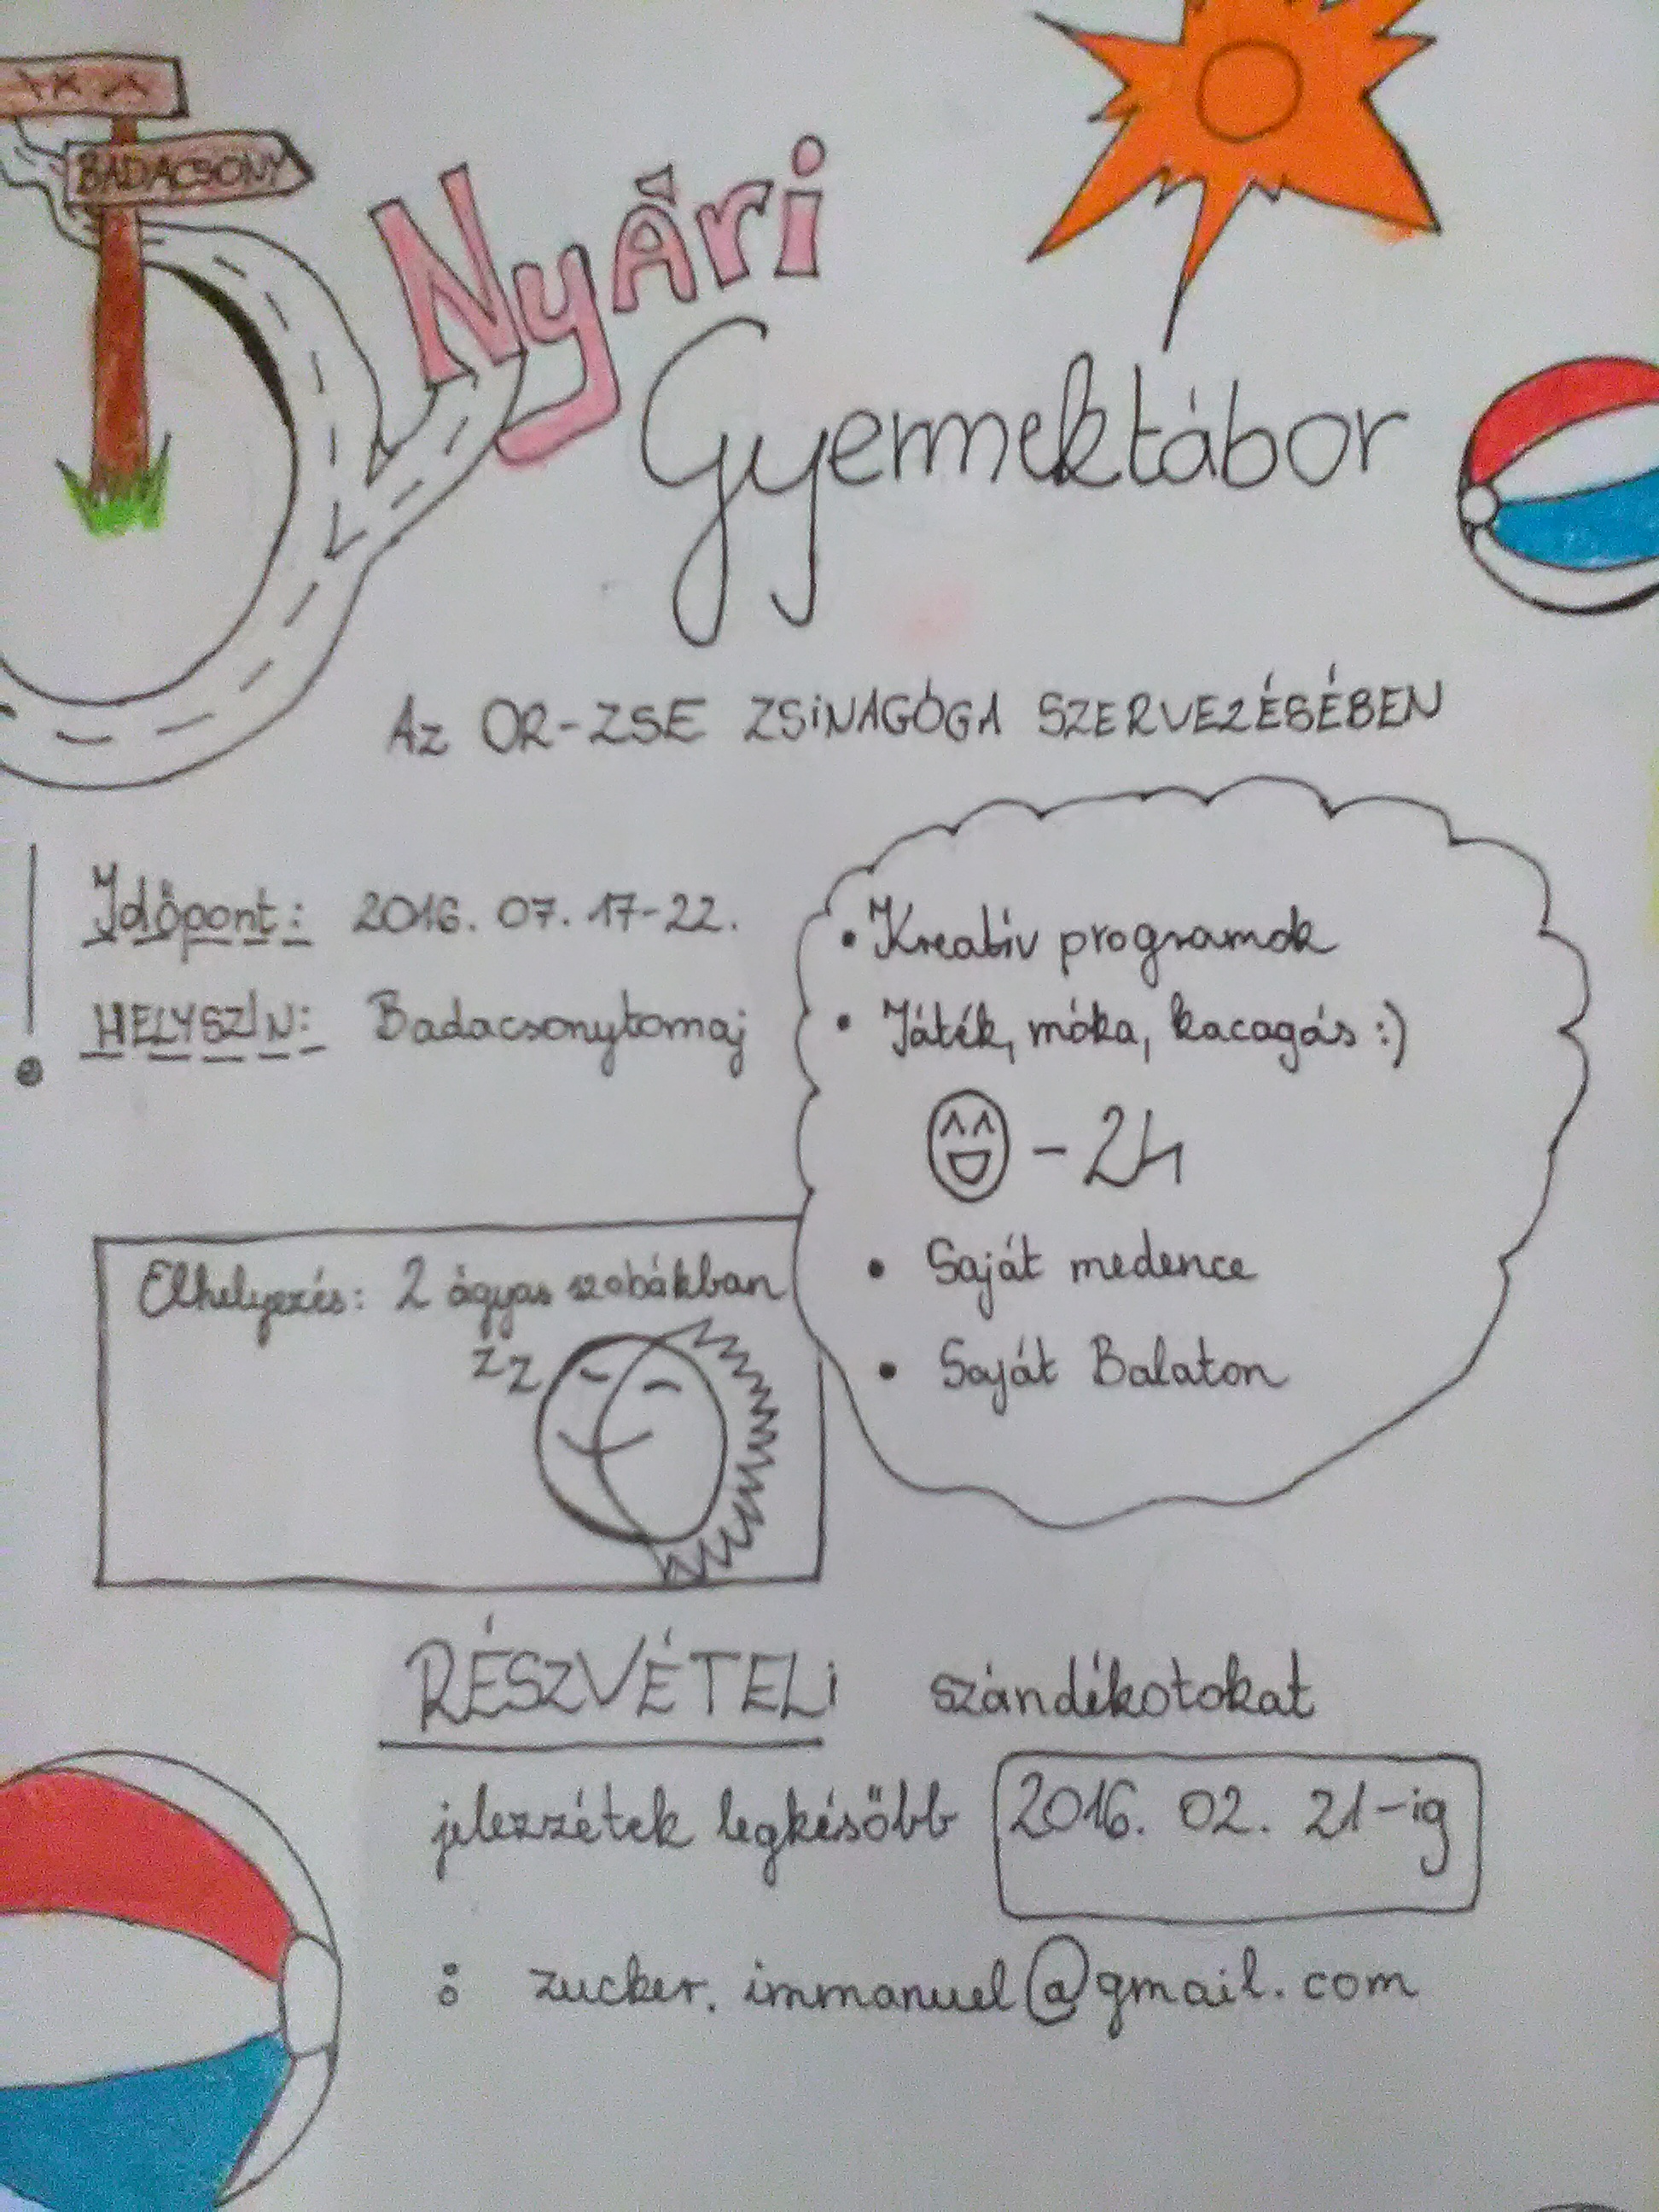 BADACSONY
Nyári
Gyermektábor
Az OR-ZSE ZSiNAGÓGA SZERVEZÉSÉBEN
Időpont: 2016. 07. 17-22.
HELYSZÍN: Badacsonytomaj
• Kreatív programok
• Játék, móka, kacagás :)
- 24
• Saját medence
• Saját Balaton
Elhelyezés: 2 ágyas szobákban
zz
RÉSZVÉTELi szándékotokat
jelezzétek legkésőbb 2016. 02. 21-ig
: zucker.immanuel@gmail.com